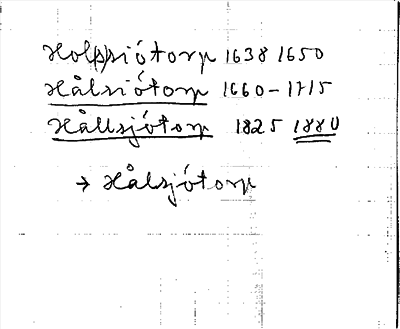 Holp(p)siótorp 1638 1650
Hålsiótorp 1660-1715
Hållsjótorp 1825 1880
→ Hålsjótorp